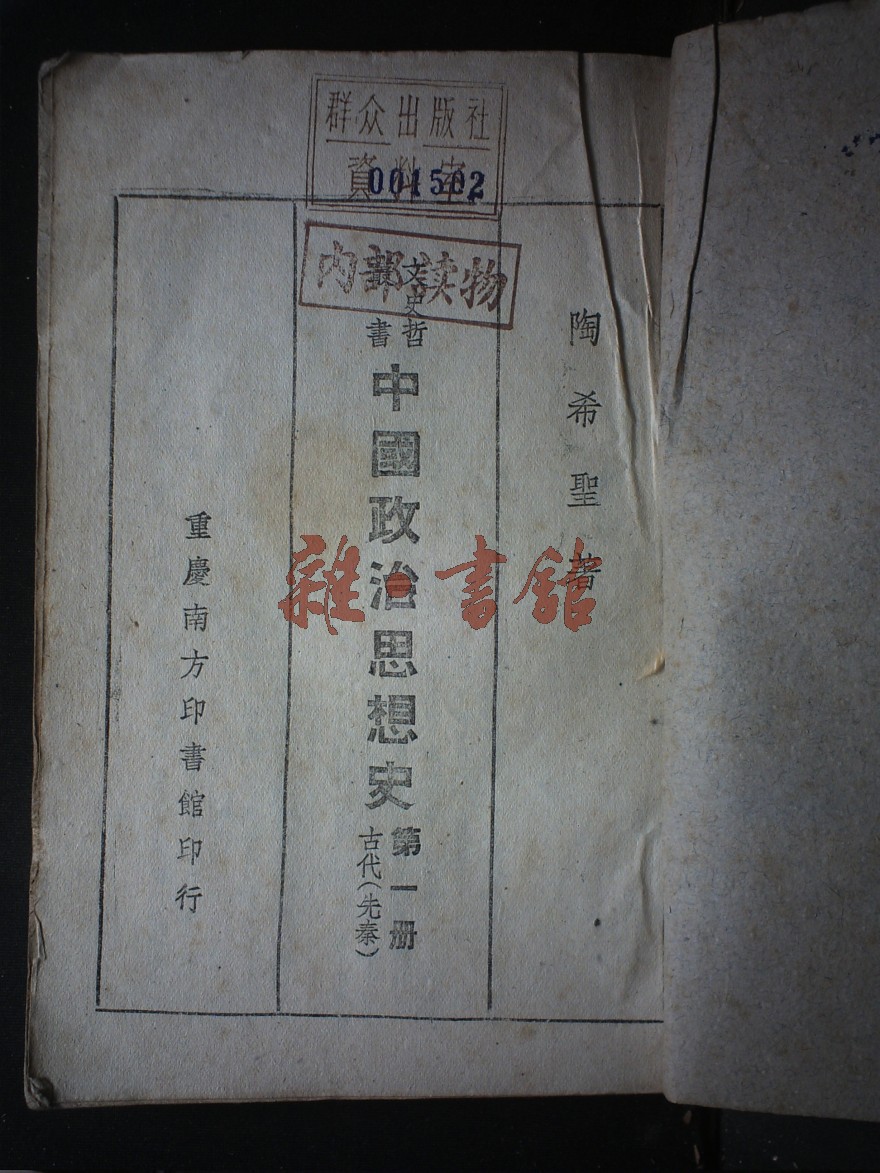 群众出版社
資料室
001502
内部读物
陶希聖著
文史哲
書
中國政治思想史
第一册
古代(先秦)
重慶南方印書館印行
雜·書館